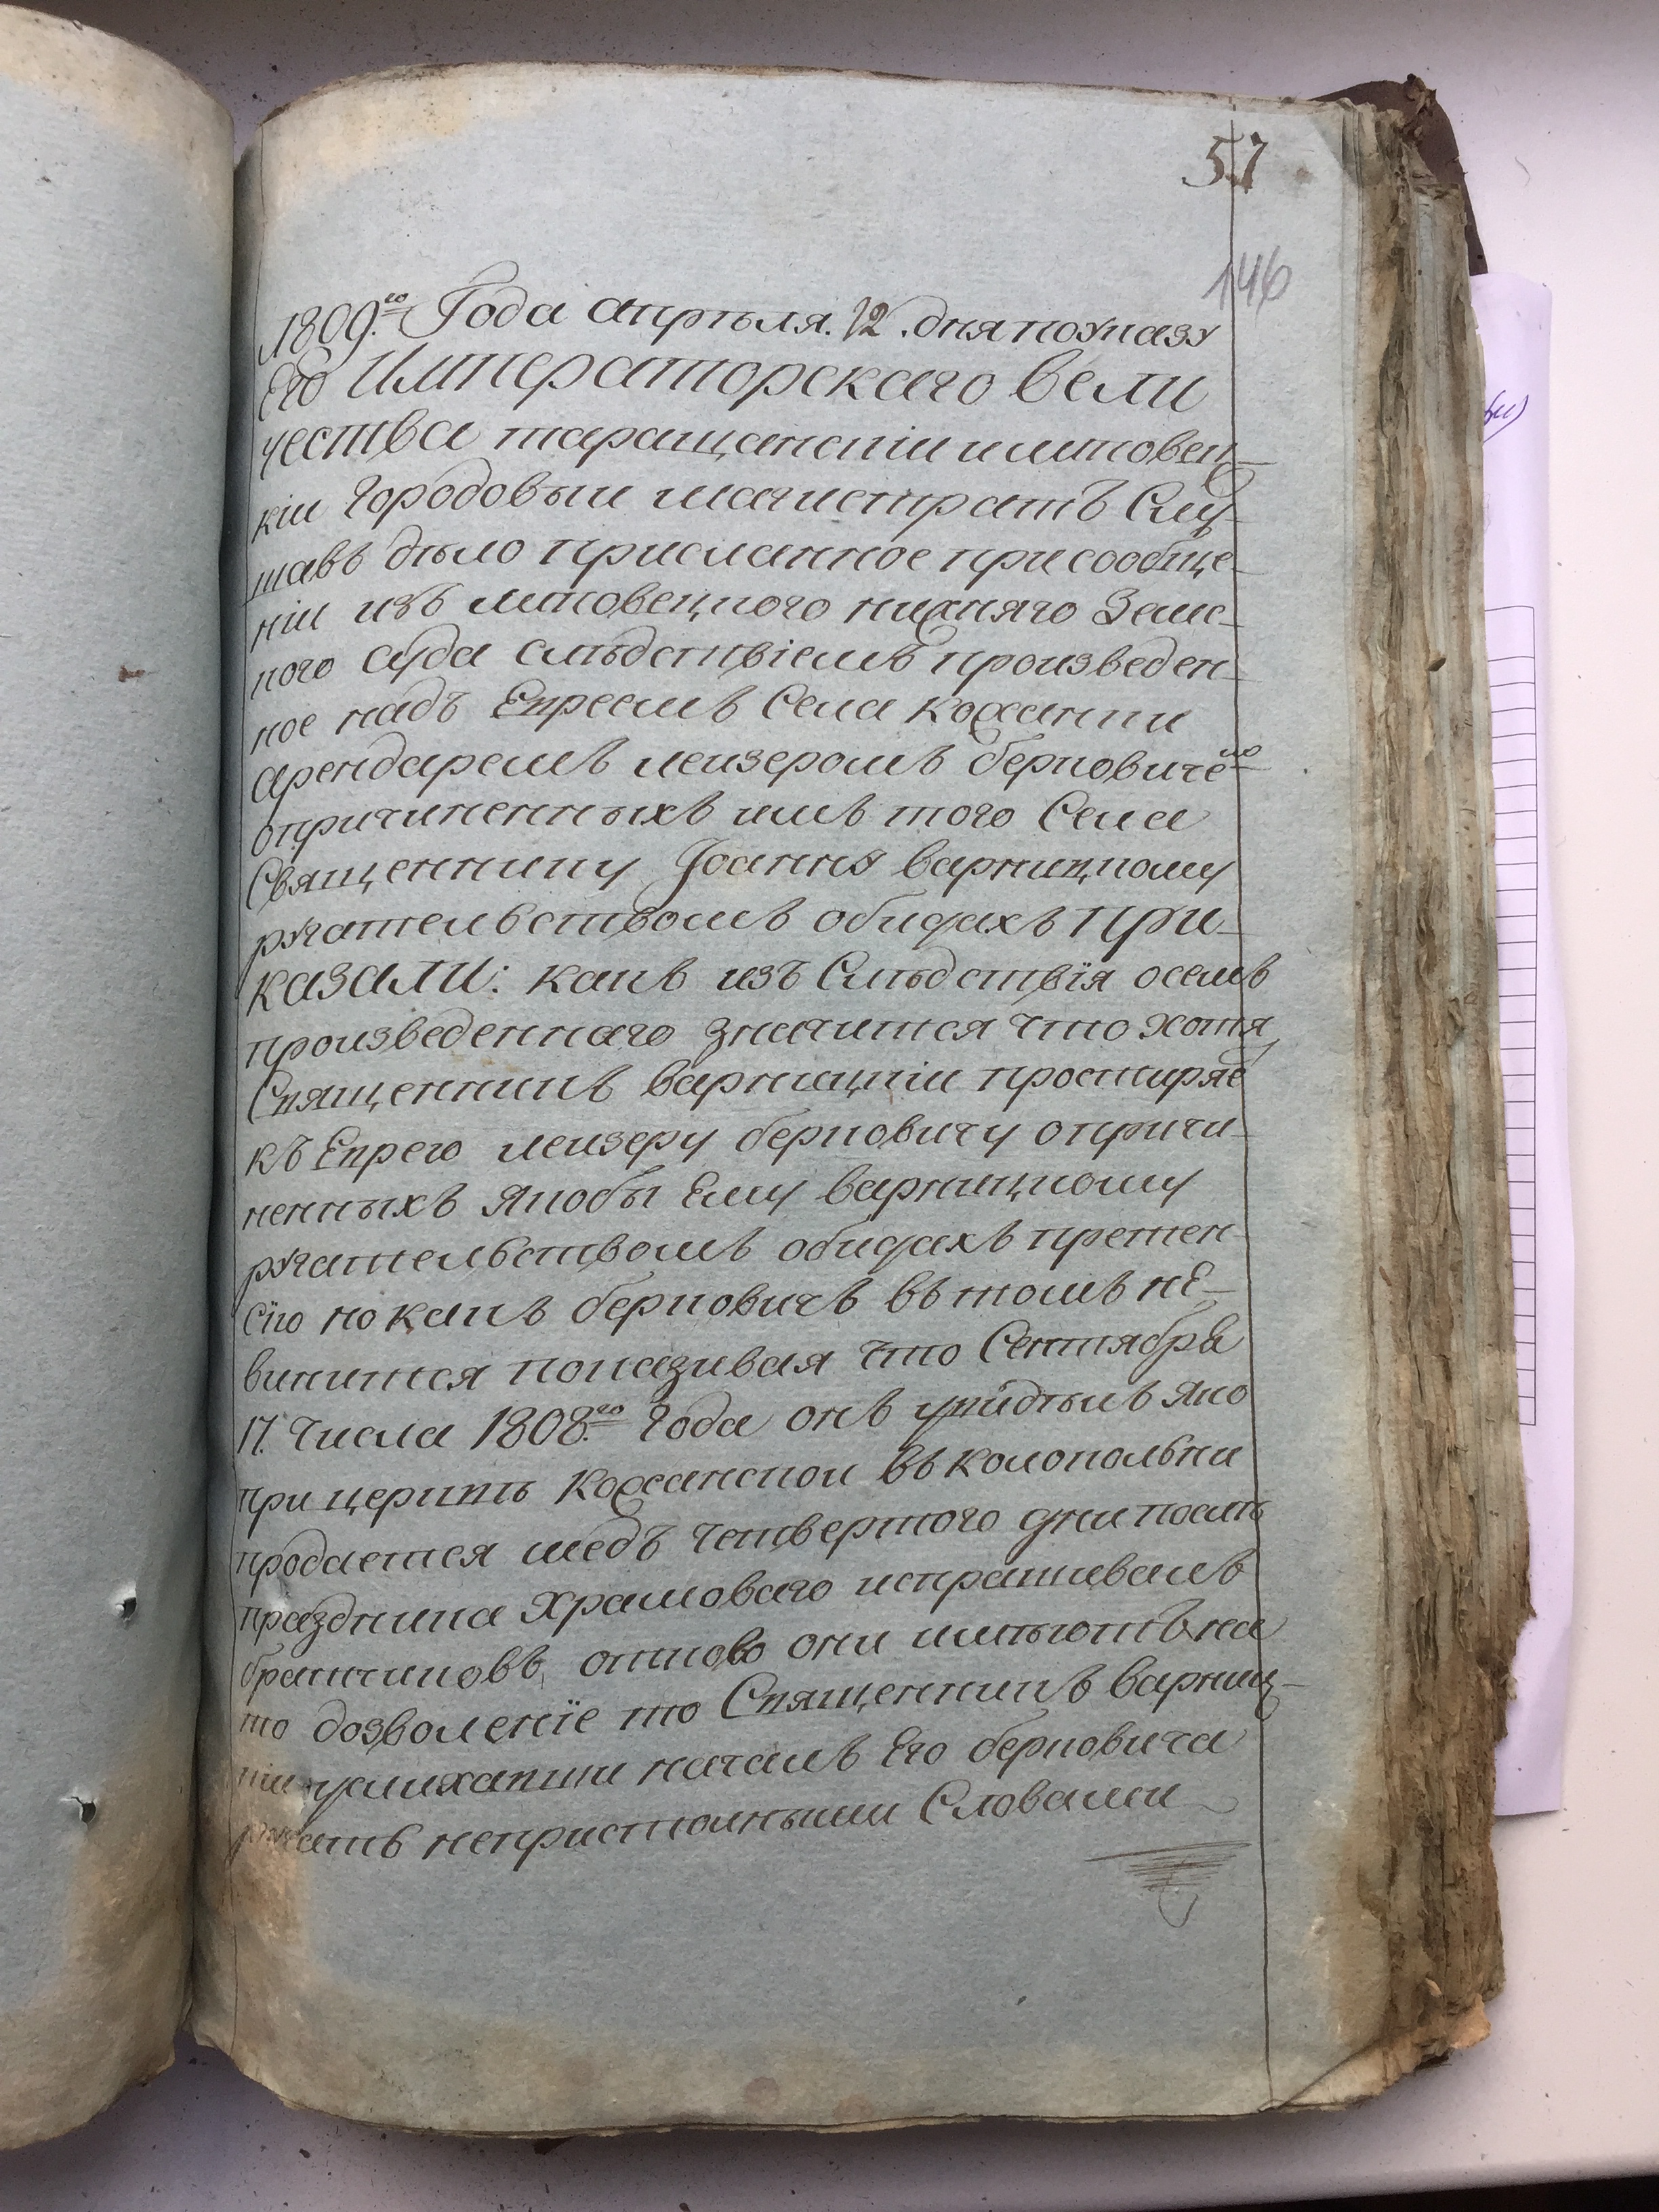 57
146
1809.го Года апрѣля. 12 .дня поуказу
Его Императорскаго Вели
чества таращанскіи илиповец-
кіи городовыи магистратъ Слу-
шавъ дѣло присланное присообще-
ніи изъ липовецкого нижняго Земс-
кого суда слѣдствіемъ произведен-
ное надъ Евреемъ села кожанки
арендаремъ леизеромъ берковичемъ
опричиненныхъ имъ того села
Священнику Іоанну варницкому
ругательствомъ обидахъ при-
казали: какъ изъ слѣдствія осемъ
произведеннаго значится что хотя
Священникъ варницкіи простиряе
къ Еврею леизеру берковичу опричи-
ненныхъ якобы Ему варницкому
ругательствомъ обидахъ претен
сію но какъ берковичъ въ томъ не-
винится показивая что Сентября
17. числа 1808.го года онъ увидѣлъ яко
при церквѣ кожанскои въ колокольни
продается медъ четвертого дни послѣ
праздника храмоваго испрашивалъ
братчиковъ отково они имѣютъ на
то дозволеніе то Священникъ варниц-
кіи услихавши началъ Его берковича
ругать непристоиными Словами